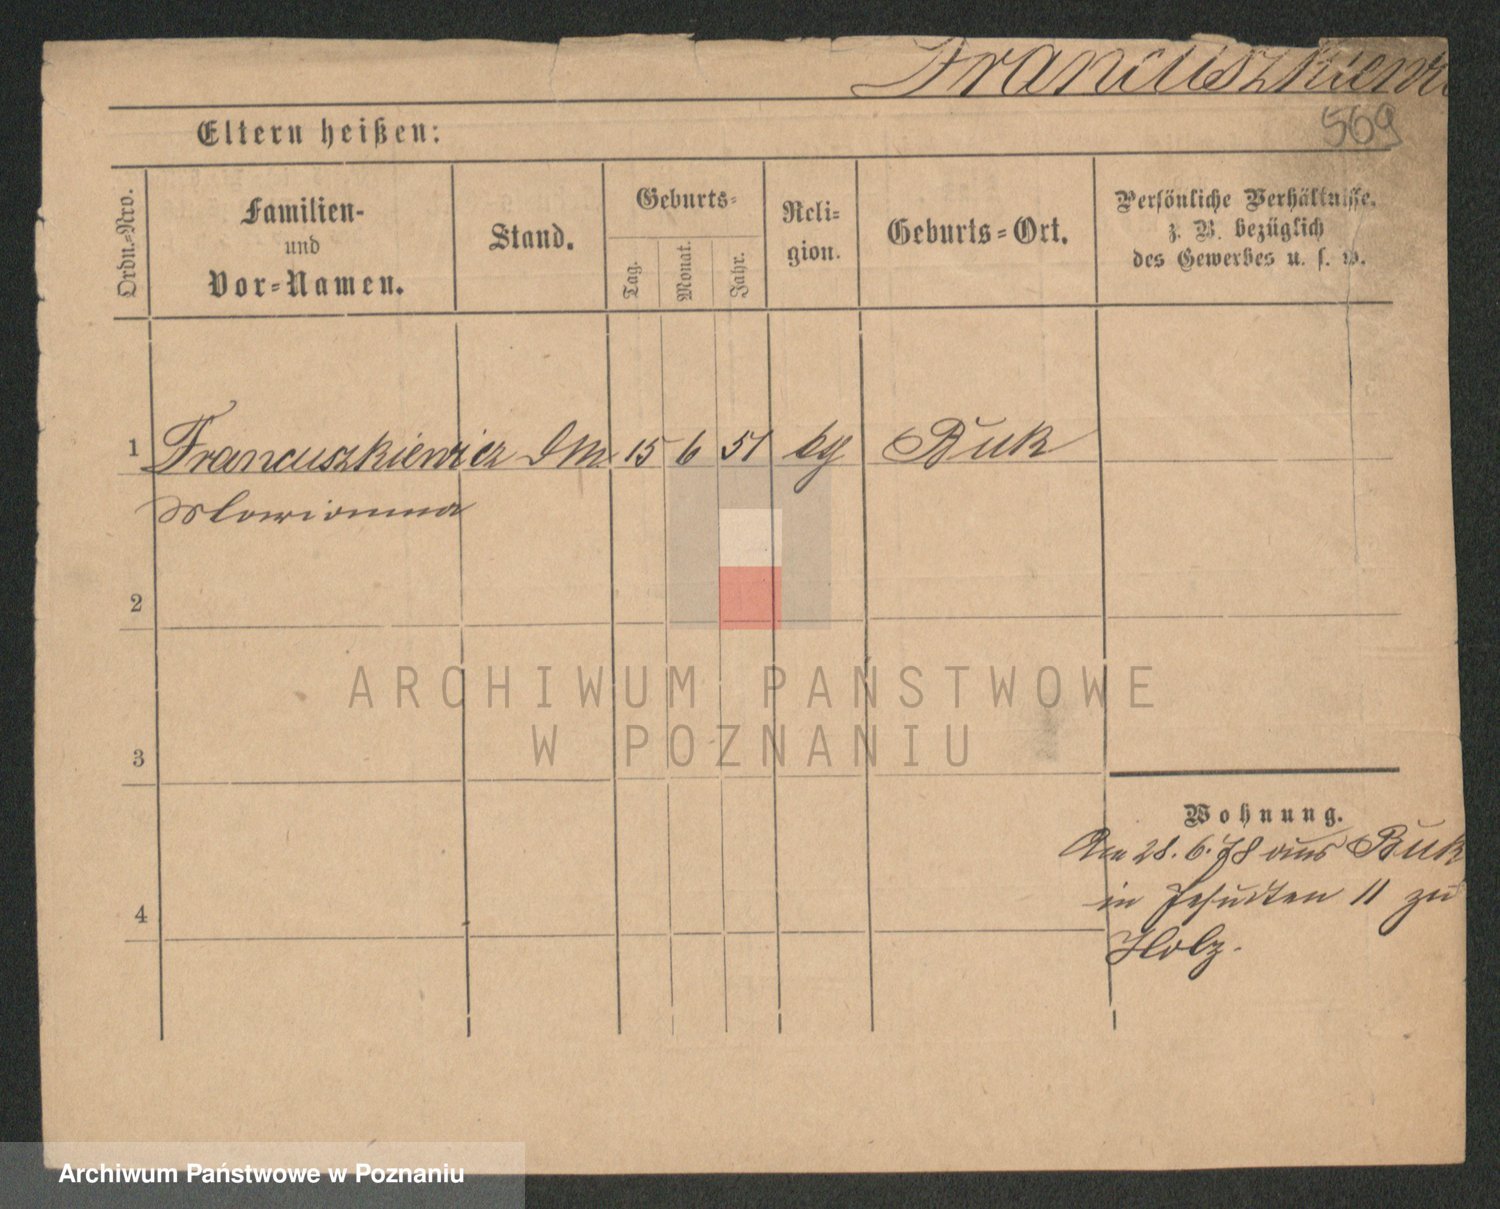 Franciszkiewi
569
Eltern heißen:
Ordn.-Nro.
Familien-
und
Vor-Namen.
Stand.
Geburts-
Tag.
Monat.
Jahr.
Reli-
gion.
Geburts-Ort.
Persönliche Verhältnisse,
z. B. bezüglich
des Gewerbes u. s. w.
1 Franciszkiewicz DM 15 6 51 kg Buk
Marianna
2
3
4
Wohnung.
Am 28. 6. 78 aus Buk
in Jesuiten 11 zu
Holz.
ARCHIWUM PAŃSTWOWE
W POZNANIU
Archiwum Państwowe w Poznaniu